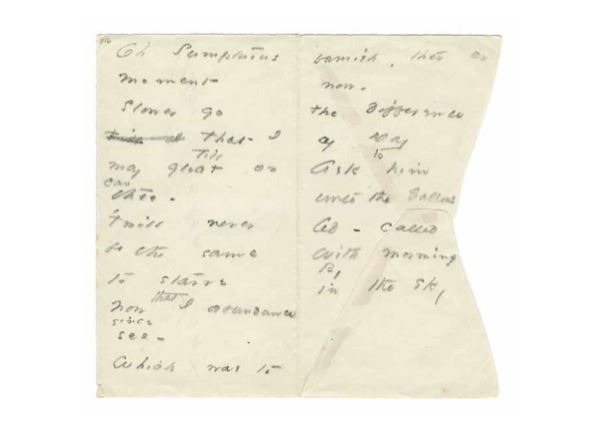 Oh Sumptuous
moment
Slower go
that I
Till
may gloat on
can
thee -
'Twill never
be the same
to starve
now that I abundance
since
see -
Which was to
famish, then or
now -
the Difference
of Day
to
Ask him
unto the Gallows
led - called
With morning
By
in the sky